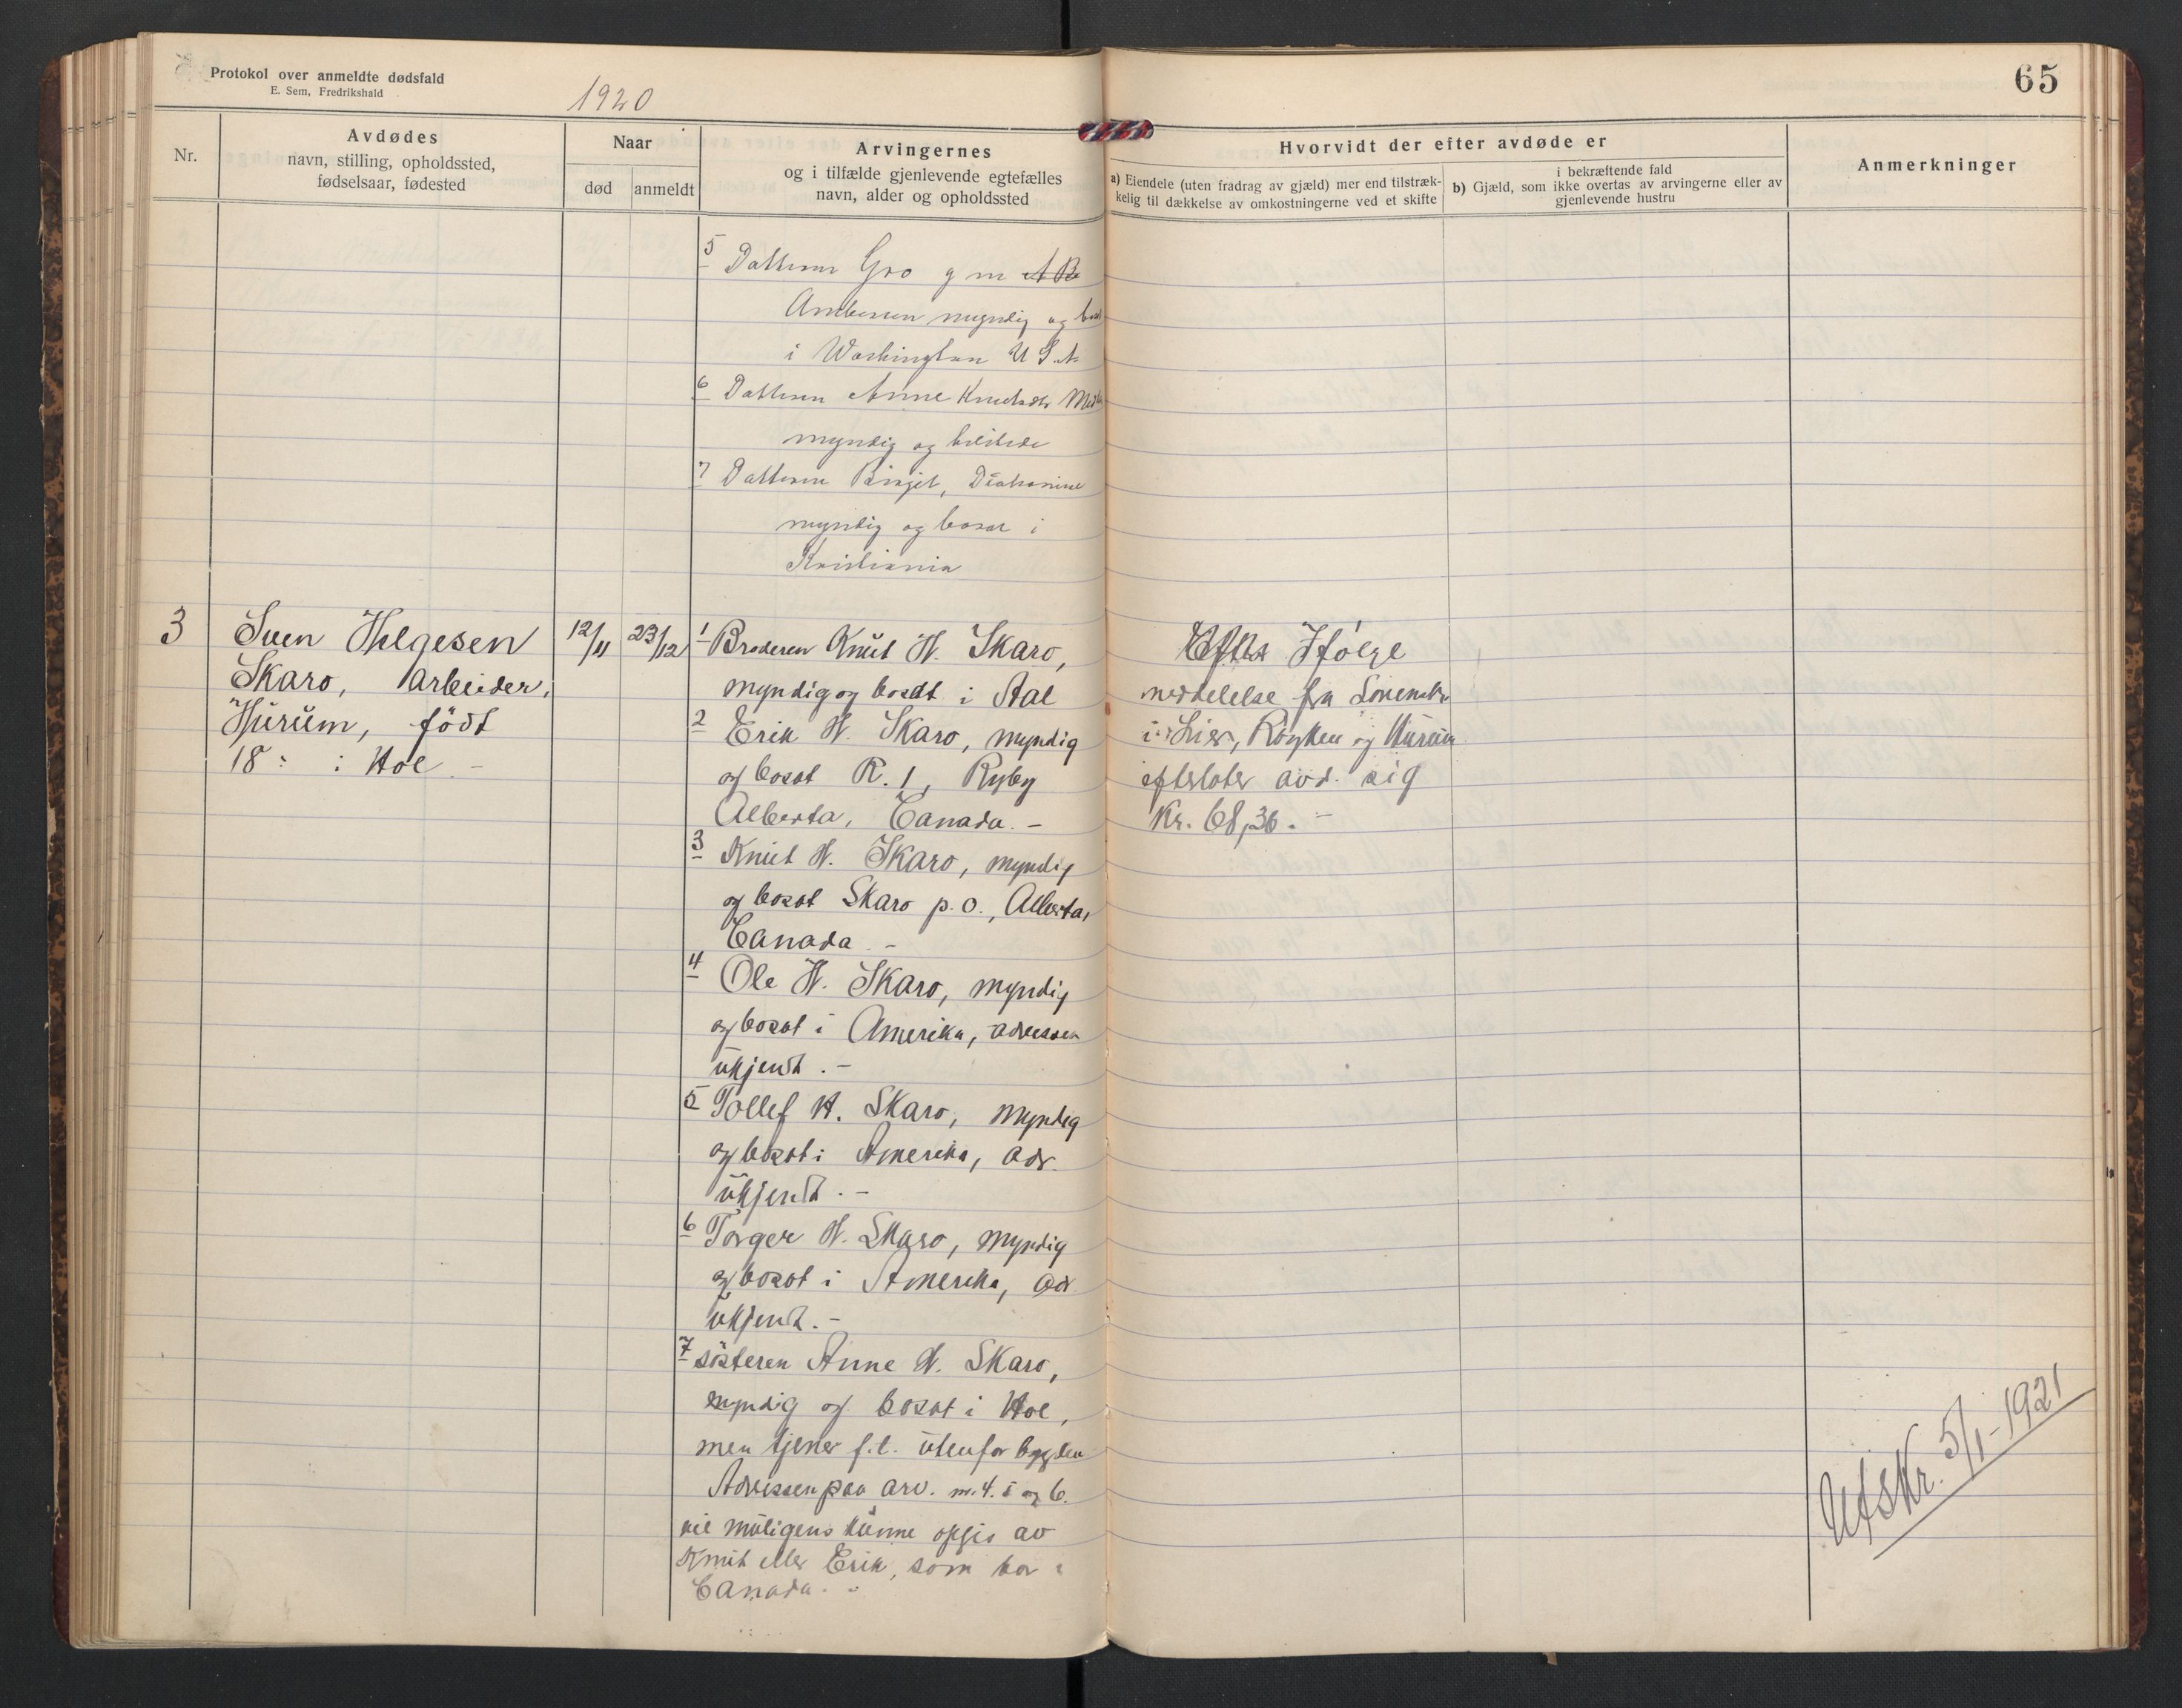 Protokol over anmeldte dødsfald
E. Sem, Fredrikshald
1920
65
Nr.
Avdødes
navn, stilling, opholdssted,
fødselsaar, fødested
Naar
død
anmeldt
Arvingernes
og i tilfælde gjenlevende egtefælles
navn, alder og opholdssted
Hvorvidt der efter avdøde er
a) Eiendele (uten fradrag av gjæld) mer end tilstræk-
kelig til dækkelse av omkostningerne ved et skifte
i bekræftende fald
b) Gjæld, som ikke overtas av arvingerne eller av
gjenlevende hustru
Anmerkninger
5 Datteren Gro g m
myndig og
i Washington U S.A
6 Datteren Anne Knutsdtr
myndig og
7 Datteren Birgit, Diakonisse
myndig og bosat i
Kristiania
3
Sven Helgesen
Skaro, arbeider,
Hurum, født
18 : i Hol -
12/11
23/12
1 Broderen Knut H. Skaro,
myndig og bosat i Aal
2 Erik H. Skaro, myndig
og bosat R. 1,
Alberta, Canada. -
3 Knut H. Skaro, myndig
og bosat Skaro p.o., Alberta,
Canada. -
4 Ole H. Skaro, myndig
og bosat i Amerika, adressen
ukjendt. -
5 Tollef H. Skaro, myndig
og bosat i Amerika, adr.
ukjendt. -
6 Torger H. Skaro, myndig
og bosat i Amerika, adr
ukjendt. -
7 søsteren Anne H. Skaro,
myndig og bosat i Hol,
men tjener f.t. utenfor bygden
Adressen paa arv. nr. 4. 5 og 6.
vil muligens kunne opgis av
Knut eller Erik, som bor i
Canada. -
Ifølge
meddelelse fra
i Lier, Røyken og Hurum
efterlater avd. sig
Kr. 68,36. -
Utskr. 5/1-1921